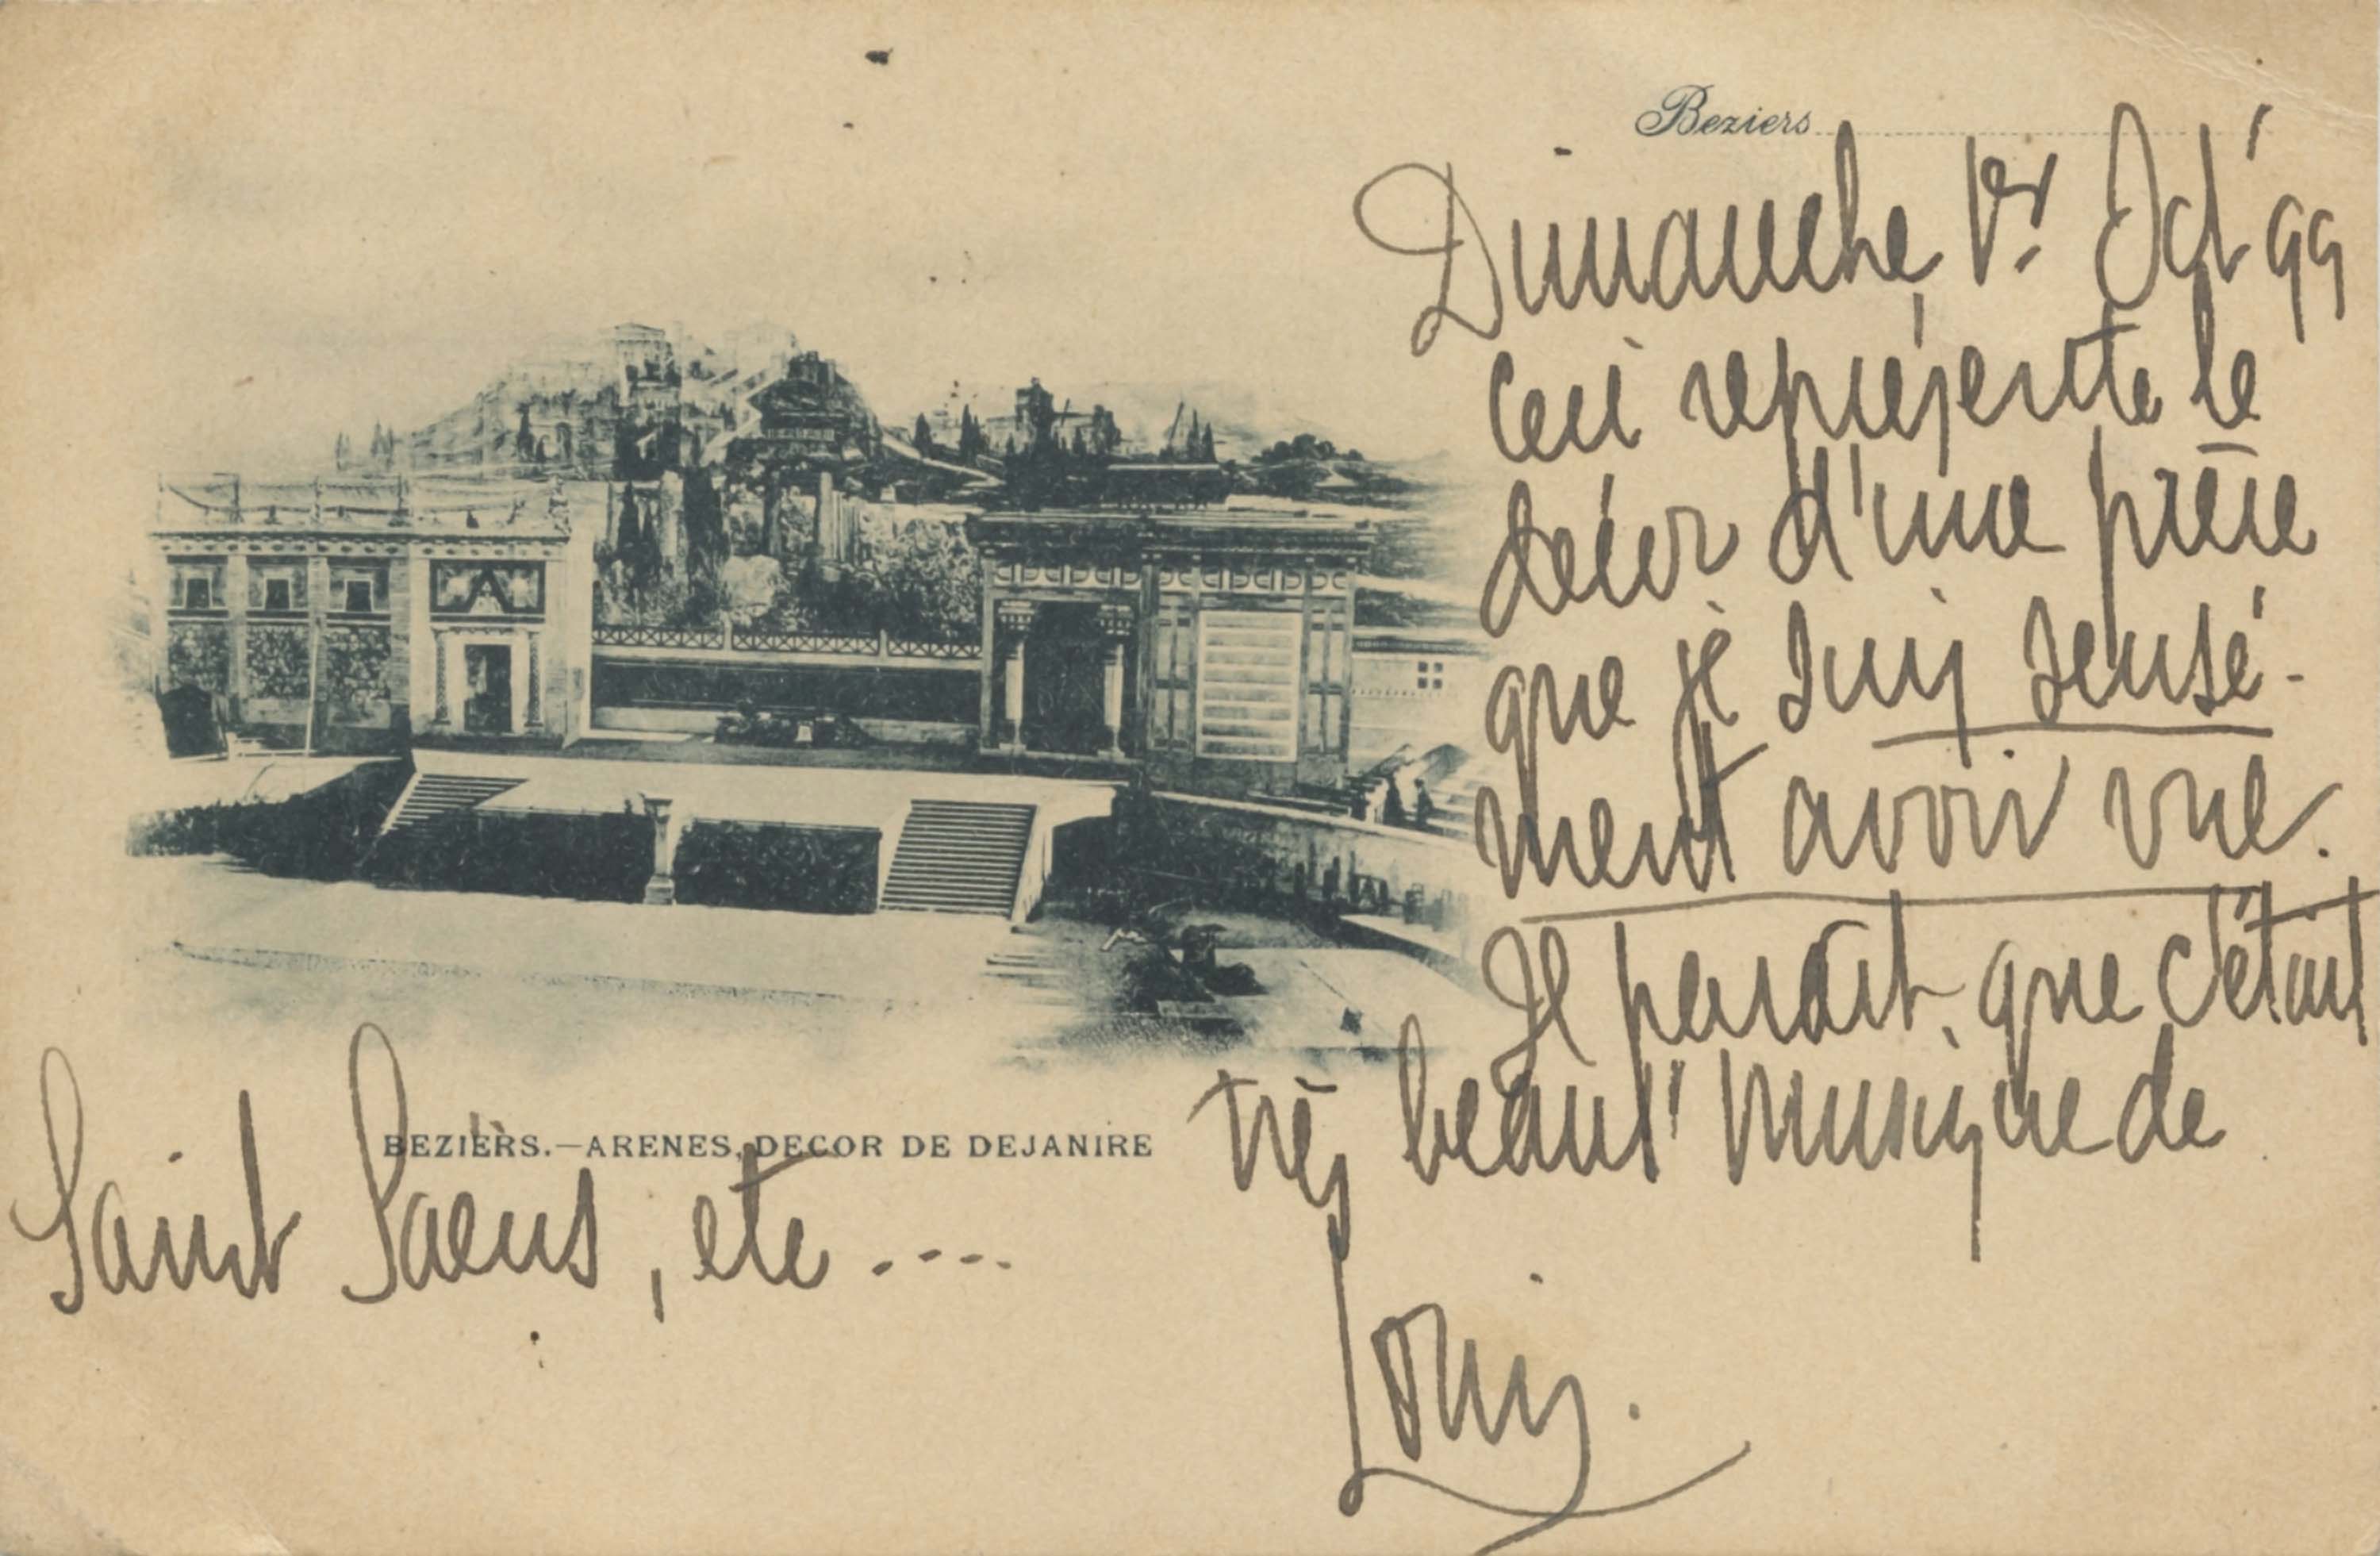 Beziers
Dimanche, 1er Oct 99
Ceci représente le
décor d'une pièce
que je suis sensé-
ment avoir vue.
Il parait, que c'était
très beau! Musique de
Saint Saëns, etc....
Louis.
BEZIÈRS.—ARENES, DECOR DE DEJANIRE